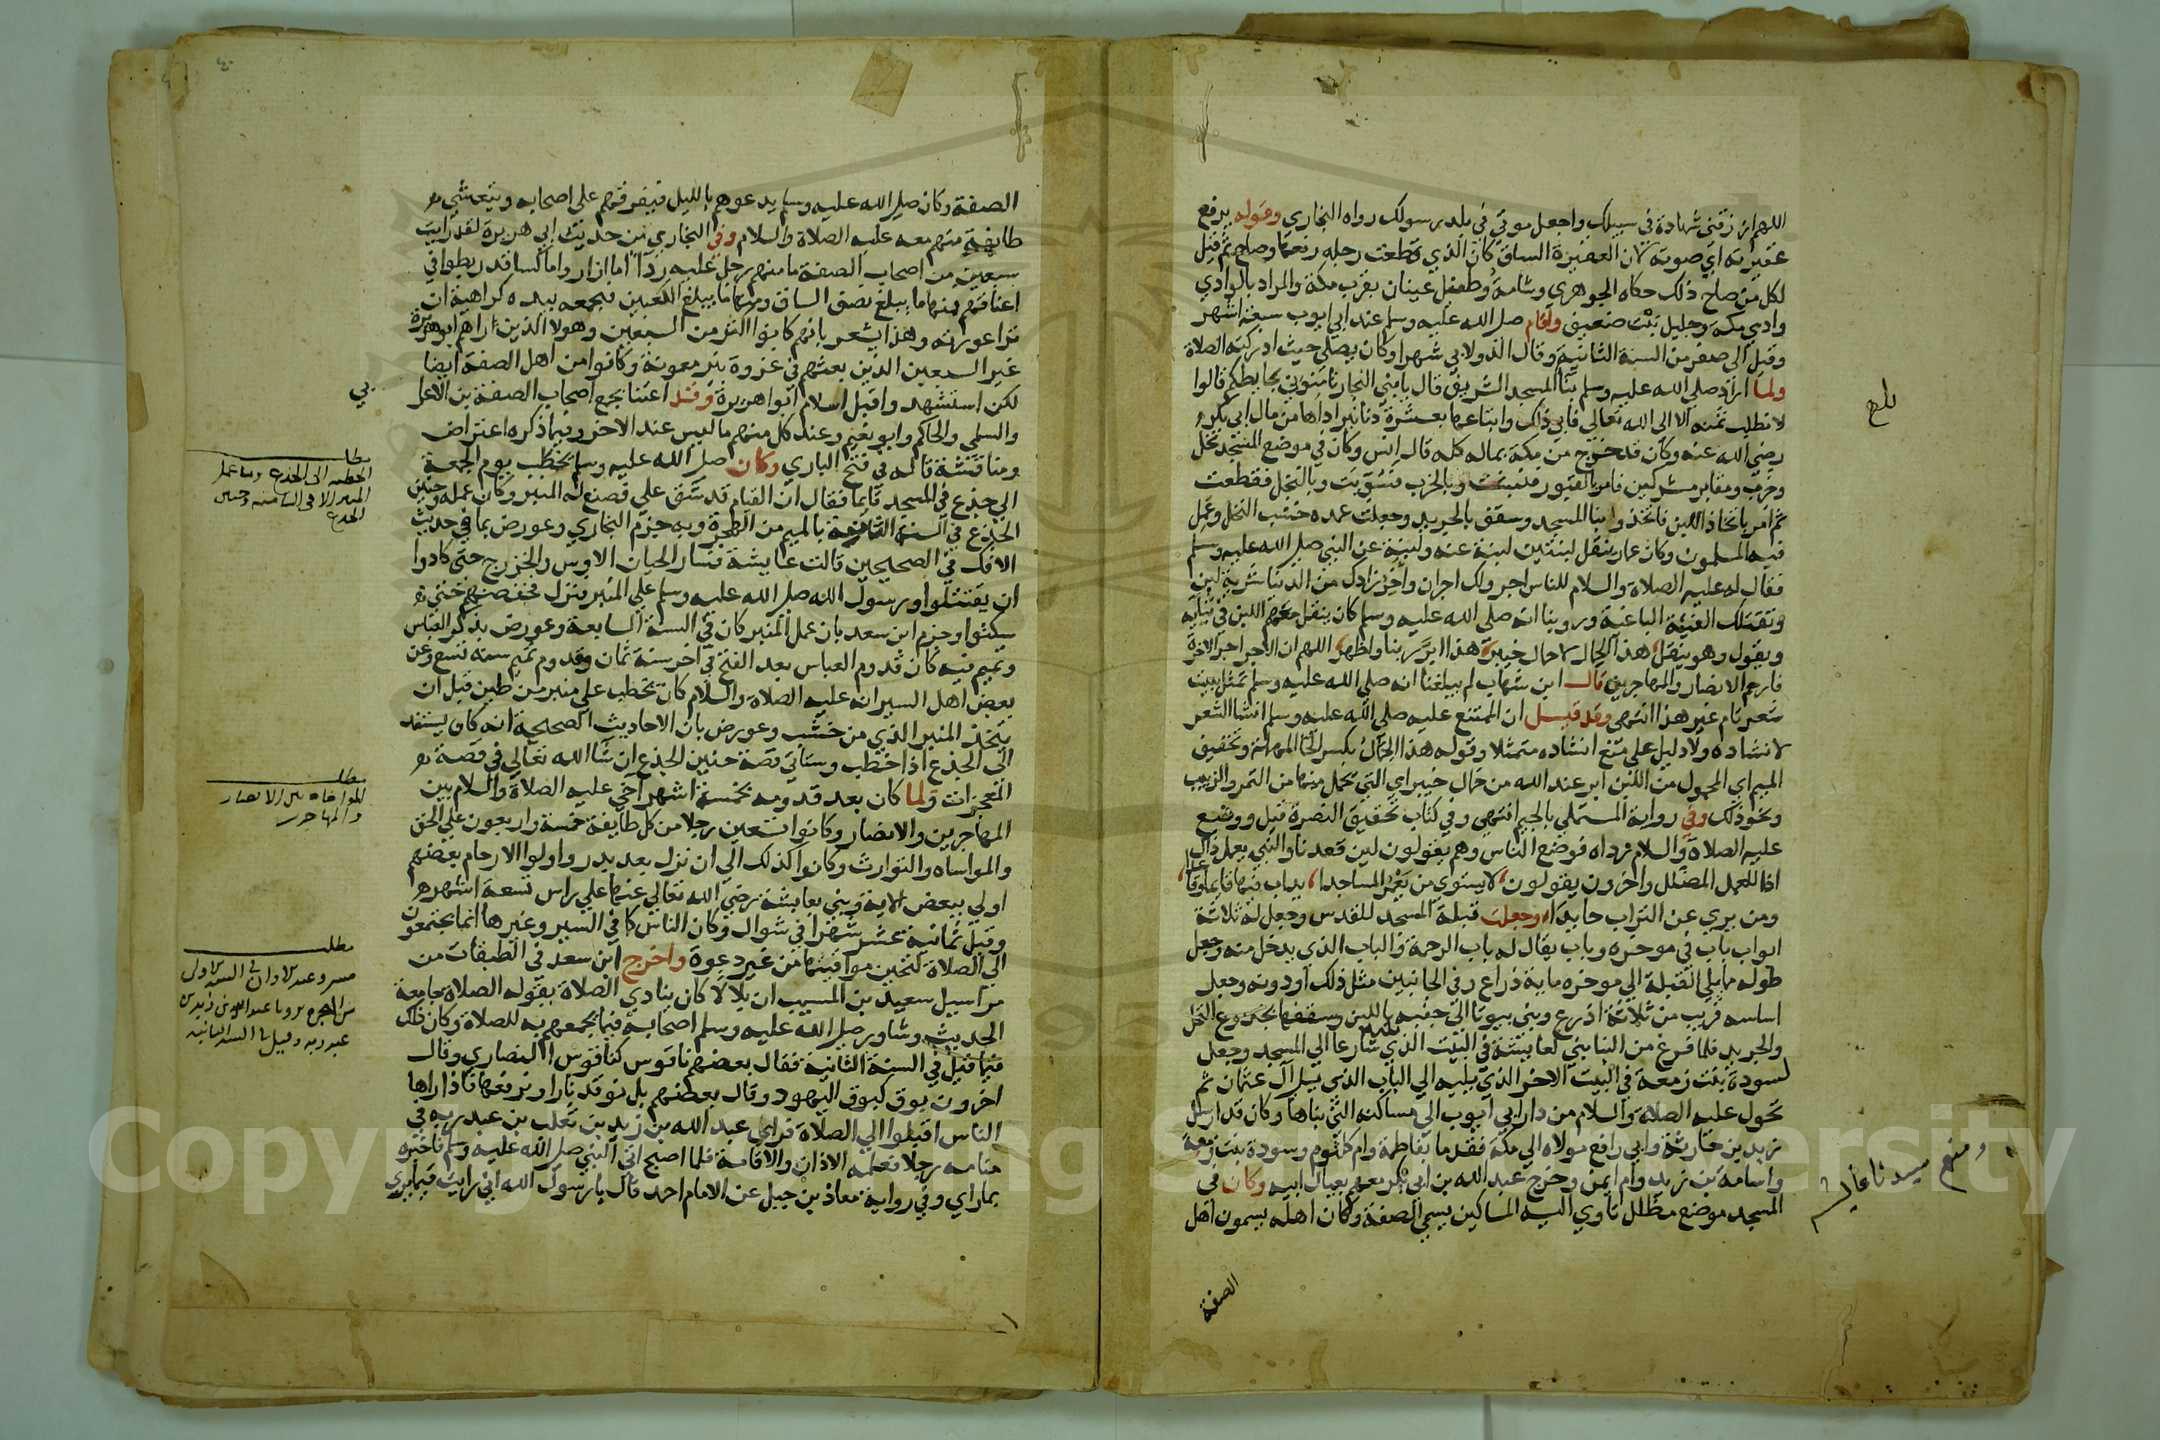 اللهم ارزقني شهادة في سبيلك واجعل موتي في بلد رسولك رواه البخاري وقوله يرفع
عقيرته اي صوته لان العقيرة الساق كان الذي قطعت رجله رفعها وصاح ثم قيل
لكل من صاح ذلك حكاه الجوهري وشامة وطفيل عينان بقرب مكة والمراد بالوادي
وادي مكة وجليل نبت ضعيف واقام صلى الله عليه وسلم عند ابي ايوب سبعة اشهر
وقيل الى صفر من السنة الثانية وقال الدولابي شهرا وكان يصلي حيث ادركته الصلاة
ولما اراد صلى الله عليه وسلم بنا المسجد الشريف قال يا بني النجار ثامنوني بحايطكم قالوا
لا نطلب ثمنه الا الى الله تعالى فابى ذلك وابتاعها بعشرة دنانير اداها من مال ابي بكر
رضي الله عنه وكان قد خرج من مكة بماله كله قال انس وكان في موضع المسجد نخل
وخرب ومقابر مشركين فامر بالقبور فنبشت وبالخرب فسويت وبالنخل فقطعت
ثم امر باتخاذ اللبن فاتخذ وبنا المسجد وسقف بالجريد وجعلت عمده خشب النخل وعمل
فيه المسلمون وكان عمار ينقل لبنتين لبنة عنه ولبنة عن النبي صلى الله عليه وسلم
فقال له عليه الصلاة والسلام للناس اجر ولك اجران واخر زادك من الدنيا شربة لبن
وتقتلك الفئة الباغية وروينا انه صلى الله عليه وسلم كان ينقل معهم اللبن في ثيابه
ويقول وهو ينقل هذا الحمال لا حمال خيبر هذا ابر ربنا واطهر اللهم ان الاجر اجر الاخرة
فارحم الانصار والمهاجرين قال ابن شهاب لم يبلغنا انه صلى الله عليه وسلم تمثل ببيت
شعر تام غير هذا انتهى وقد قيل ان الممتنع عليه صلى الله عليه وسلم انشا الشعر
لا انشاده ولا دليل على منع انشاده متمثلا وقوله هذا الحمال بكسر الحا المهملة وتخفيف
الميم اي المحمول من اللبن ابر عند الله من حمال خيبر اي التي يحمل منها من التمر والزبيب
ونحو ذلك وفي رواية المستملي بالجيم انتهى وفي كتاب تحقيق النصرة قيل ووضع
عليه الصلاة والسلام رداه فوضع الناس وهم يقولون لين قعدنا والنبي يعمل ذاك
اذا للعمل المضلل واخرون يقولون لا يستوي من يعمر المساجدا يداب فيها قايما وقاعدا
ومن يرى عن التراب حايدا وجعلت قبلة المسجد للقدس وجعل له ثلاثة
ابواب باب في موخره وباب يقال له باب الرحمة والباب الذي يدخل منه وجعل
طوله مما يلي القبلة الى موخره ماية ذراع وفي الجانبين مثل ذلك او دونه وجعل
اساسه قريب من ثلاثة اذرع وبنى بيوتا الى جنبه باللبن وسقفها بجذوع النخل
والجريد فلما فرغ من البنا بنى لعايشة في البيت الذي شارعا الى المسجد وجعل
لسودة بنت زمعة في البيت الاخر الذي يليه الى الباب الذي يلي آل عثمان ثم
تحول عليه الصلاة والسلام من دار ابي ايوب الى مساكنه التي بناها وكان قد ارسل
زيد بن حارثة وابي رافع مولاه الى مكة فقدما بفاطمة وام كلثوم وسودة بنت زمعة
واسامة بن زيد وام ايمن وخرج عبد الله بن ابي بكر معهم بعيال ابيه وكان في
المسجد موضع مظلل تاوي اليه المساكين يسمى الصفة وكان اهله يسمون اهل
الصفة
بلغ
الصفة وكان صلى الله عليه وسلم يدعوهم بالليل فيفرقهم على اصحابه ويتعشى
طايفة منهم معه عليه الصلاة والسلام وفي البخاري من حديث ابي هريرة لقد رايت
سبعين من اصحاب الصفة ما منهم رجل عليه ردا اما ازار واما كسا قد ربطوا في
اعناقهم فمنها ما يبلغ نصف الساق ومنها ما يبلغ الكعبين فيجمعه بيده كراهية ان
ترا عورته وهذا يشعر بانهم كانوا اكثر من السبعين وهولا الذين راهم ابو هريرة
غير السبعين الذين بعثهم في غزوة بير معونة وكانوا من اهل الصفة ايضا
لكن استشهدوا قبل اسلام ابو هريرة وقد اعتنا بجمع اصحاب الصفة بن الاعرابي
والسلمي والحاكم وابو نعيم وعند كل منهم ما ليس عند الاخر وفيما ذكره اعتراض
ومناقشة قاله في فتح الباري وكان صلى الله عليه وسلم يخطب يوم الجمعة
الى جذع في المسجد قايما فقال ان القيام قد شق علي فصنع له المنبر وكان عمله وحنين
الجذع في السنة الثامنة بالميم من الهجرة وبه جزم البخاري وعورض بما في حديث
الافك في الصحيحين قالت عايشة فثار الحيان الاوس والخزرج حتى كادوا
ان يقتتلوا ورسول الله صلى الله عليه وسلم على المنبر فنزل فخفضهم حتى
سكتوا وجزم ابن سعد بان عمل المنبر كان في السنة السابعة وعورض بذكر العباس
وتميم فيه كان قدوم العباس بعد الفتح في اخر سنة ثمان وقدوم تميم سنة تسع وعن
بعض اهل السير انه عليه الصلاة والسلام كان يخطب على منبر من طين قبل ان
يتخذ المنبر الذي من خشب وعورض بان الاحاديث الصحيحة انه كان يستند
الى الجذع اذا خطب وستاتي قصة حنين الجذع ان شا الله تعالى في قصة
المعجزات ولما كان بعد قدومه بخمسة اشهر آخى عليه الصلاة والسلام بين
المهاجرين والانصار وكانوا تسعين رجلا من كل طايفة خمسة واربعون على الحق
والمواساة والتوارث وكانوا كذلك الى ان نزل بعد بدر واولوا الارحام بعضهم
اولى ببعض الاية وبنى بعايشة رضي الله تعالى عنها على راس تسعة اشهر
وقيل ثمانية عشر شهرا في شوال وكان الناس كما في السير وغيرها انما يجتمعون
الى الصلاة لتحين مواقيتها من غير دعوة واخرج ابن سعد في الطبقات من
مراسيل سعيد بن المسيب ان بلالا كان ينادي الصلاة بقوله الصلاة جامعة
الحديث وشاور صلى الله عليه وسلم اصحابه فيما يجمعهم به للصلاة وكان ذلك
فيما قيل في السنة الثانية فقال بعضهم ناقوس كناقوس النصارى وقال
اخرون بوق كبوق اليهود وقال بعضهم بل نوقد نارا ونرفعها فاذا راها
الناس اقبلوا الى الصلاة فراى عبد الله بن زيد بن ثعلب بن عبد ربه في
منامه رجلا فعلمه الاذان والاقامة فلما اصبح اتى النبي صلى الله عليه وسلم فاخبره
بما راى وفي رواية معاذ بن جبل عن الامام احمد قال يا رسول الله اني رايت فيما يرى
مطلب
الخطبة الى الجذع وما عمل
المنبر الا في الثامنة وحنين
الجذع
مطلب
المواخاة بين الانصار
والمهاجرين
مطلب
Copyright © King Saud University